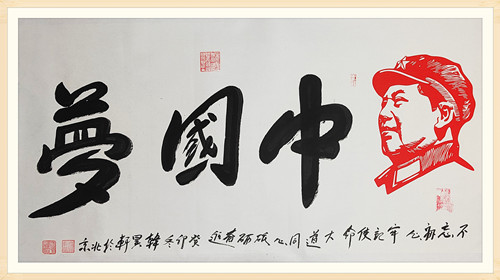 中國夢
不忘初心牢記使命大道同心砥礪進癸卯冬韓墨軒於北京